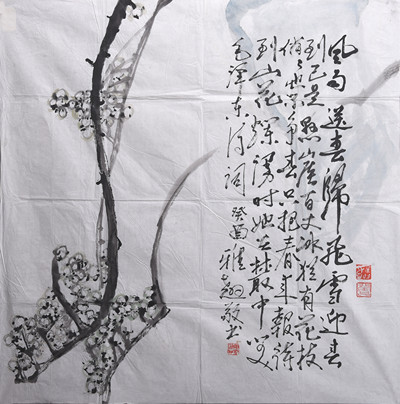 風雨送春歸飛雪迎春
到已是懸崖百丈冰犹有花枝
俏々也不争春只把春来報待
到山花爛漫时她在叢中笑
毛澤东诗词 癸酉 雅 敬书